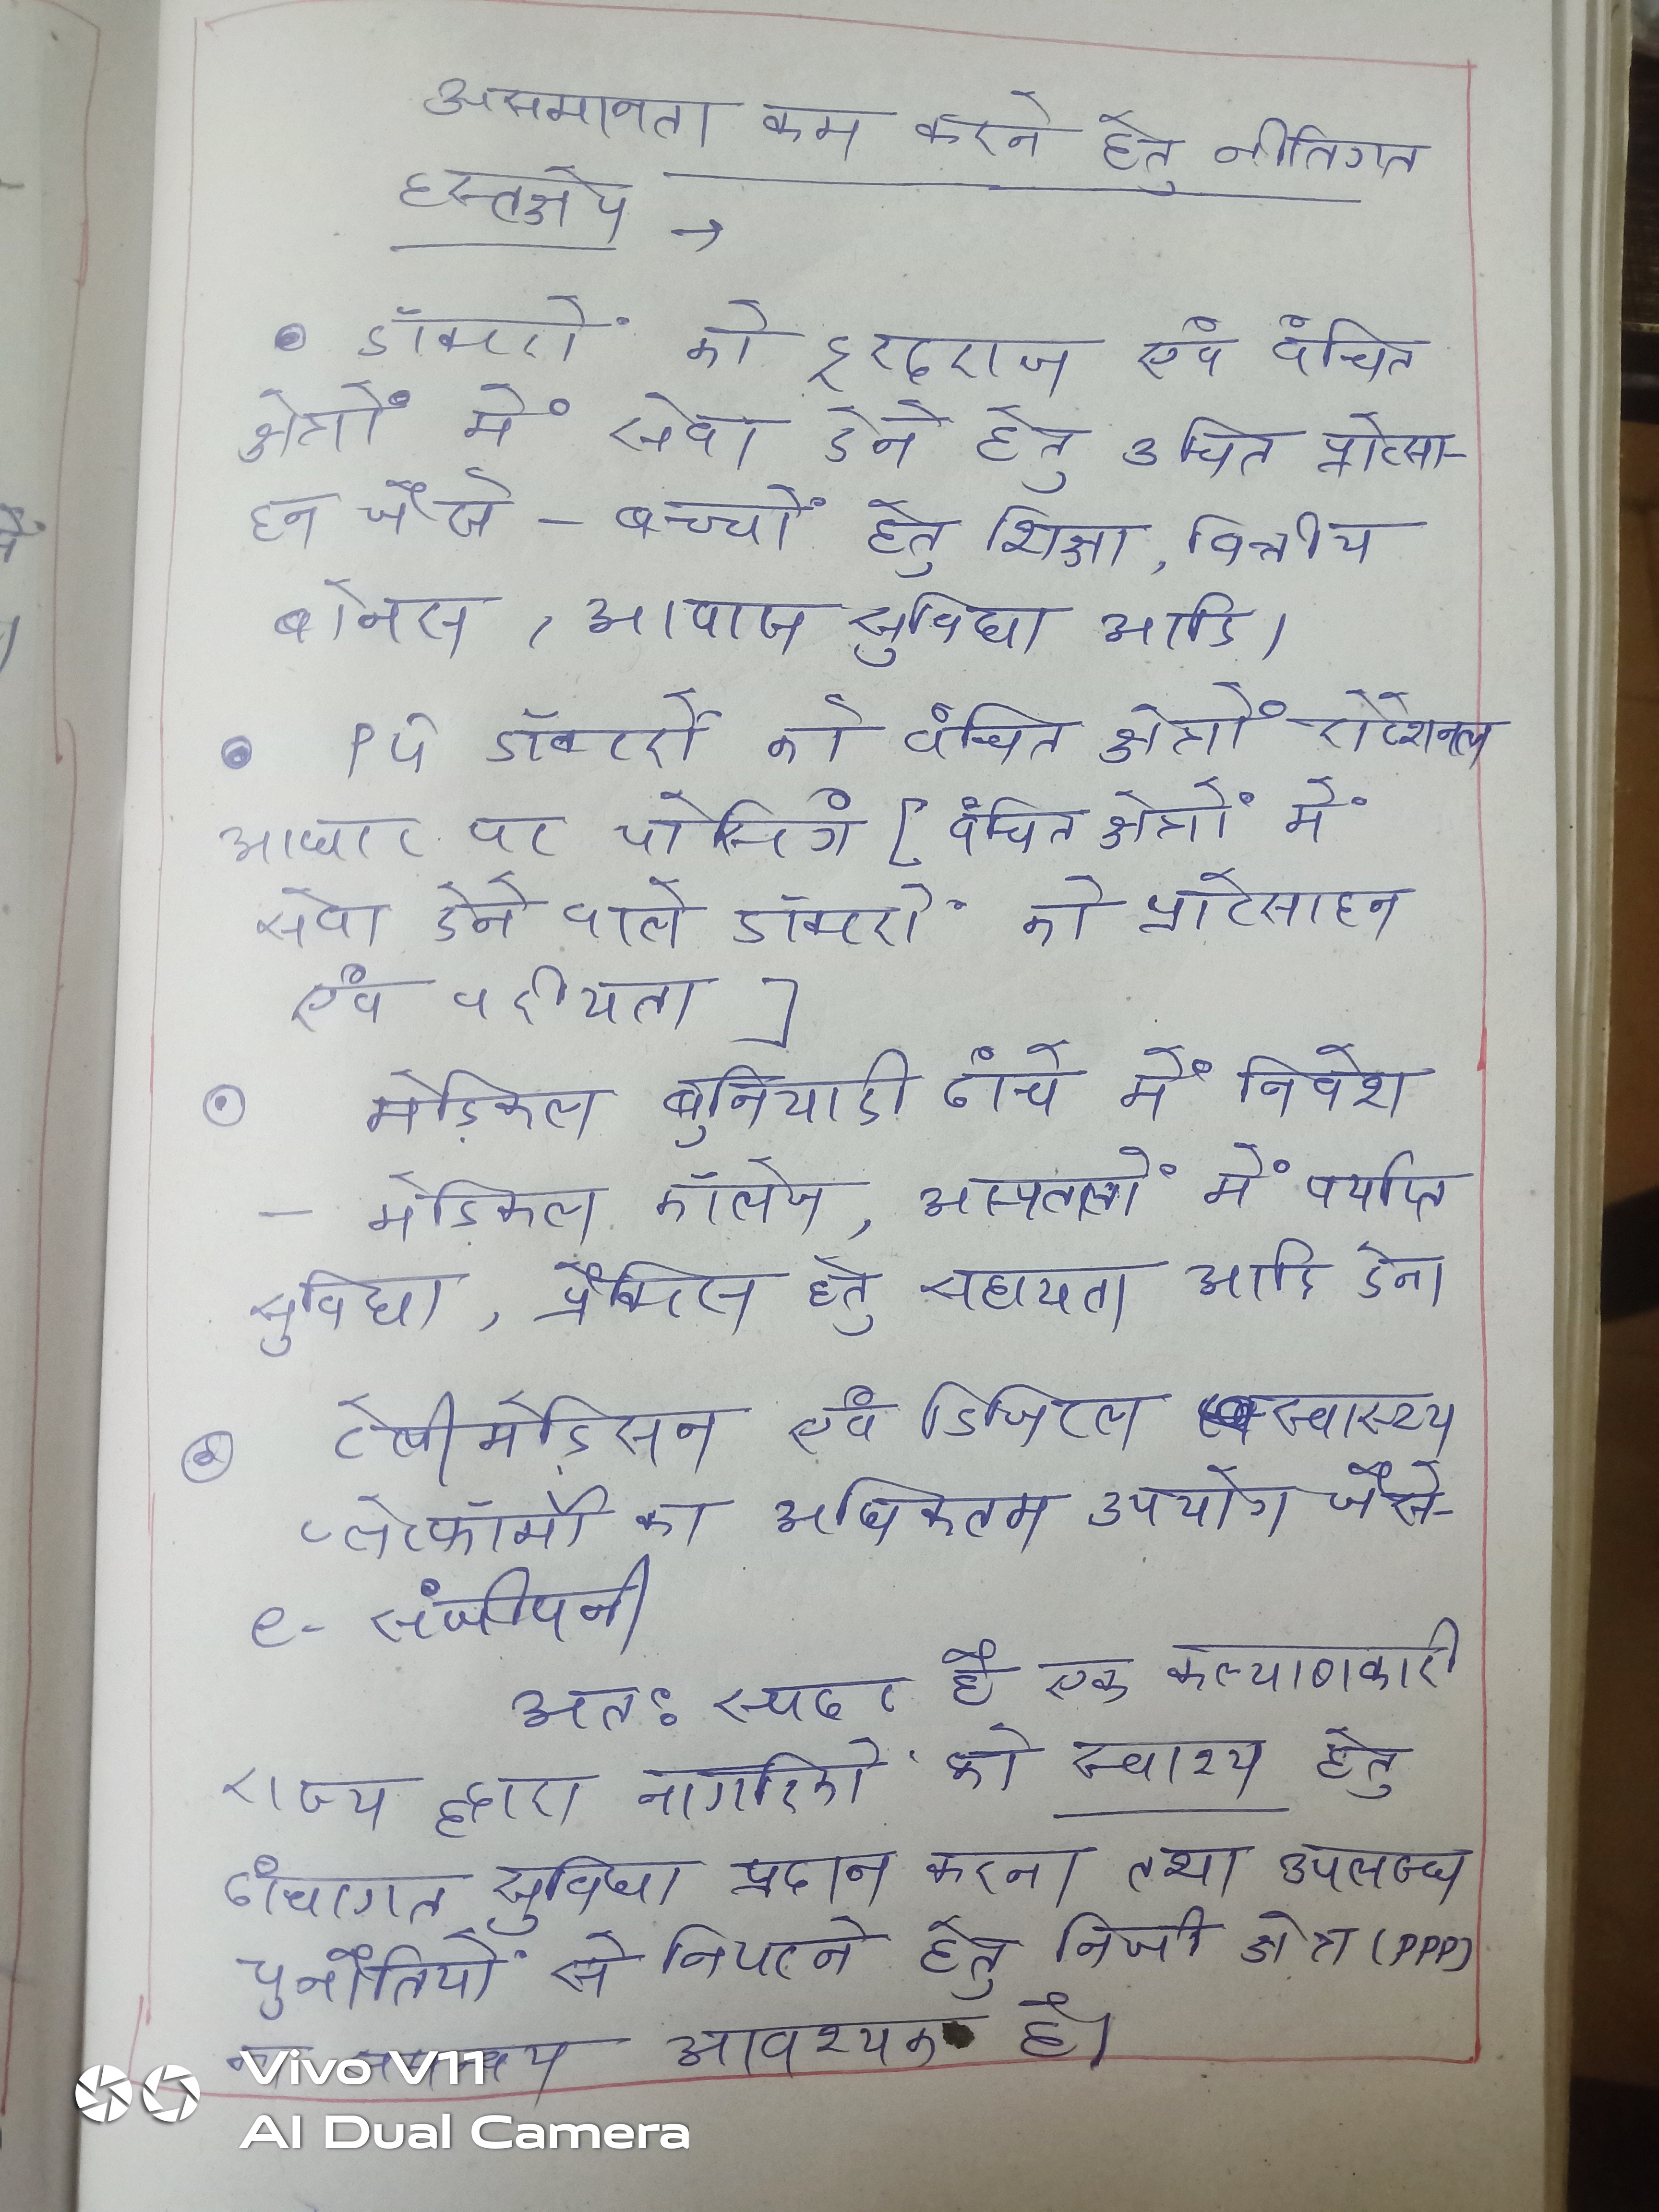 असमानता कम करने हेतु नीतिगत
हस्तक्षेप →
• डॉक्टरों को दूरदराज एवं वंचित
क्षेत्रों में सेवा देने हेतु उचित प्रोत्सा-
हन जैसे - बच्चों हेतु शिक्षा, वित्तीय
बोनस, आवास सुविधा आदि।
• PG डॉक्टरों को वंचित क्षेत्रों रोटेशनल
आधार पर पोस्टिंग [वंचित क्षेत्रों में
सेवा देने वाले डॉक्टरों को प्रोत्साहन
एवं वरीयता]
• मेडिकल बुनियादी ढांचे में निवेश
- मेडिकल कॉलेज, अस्पतालों में पर्याप्त
सुविधा, प्रैक्टिस हेतु सहायता आदि देना
• टेलीमेडिसन एवं डिजिटल स्वास्थ्य
प्लेटफॉर्मों का अधिकतम उपयोग जैसे-
e- संजीवनी
अतः स्पष्ट है एक कल्याणकारी
राज्य द्वारा नागरिकों को स्वाश्य हेतु
ढांचागत सुविधा प्रदान करना तथा उपलब्ध
चुनौतियों से निपटने हेतु निजी क्षेत्र (PPP)
आवश्यक है।
Vivo V11
AI Dual Camera